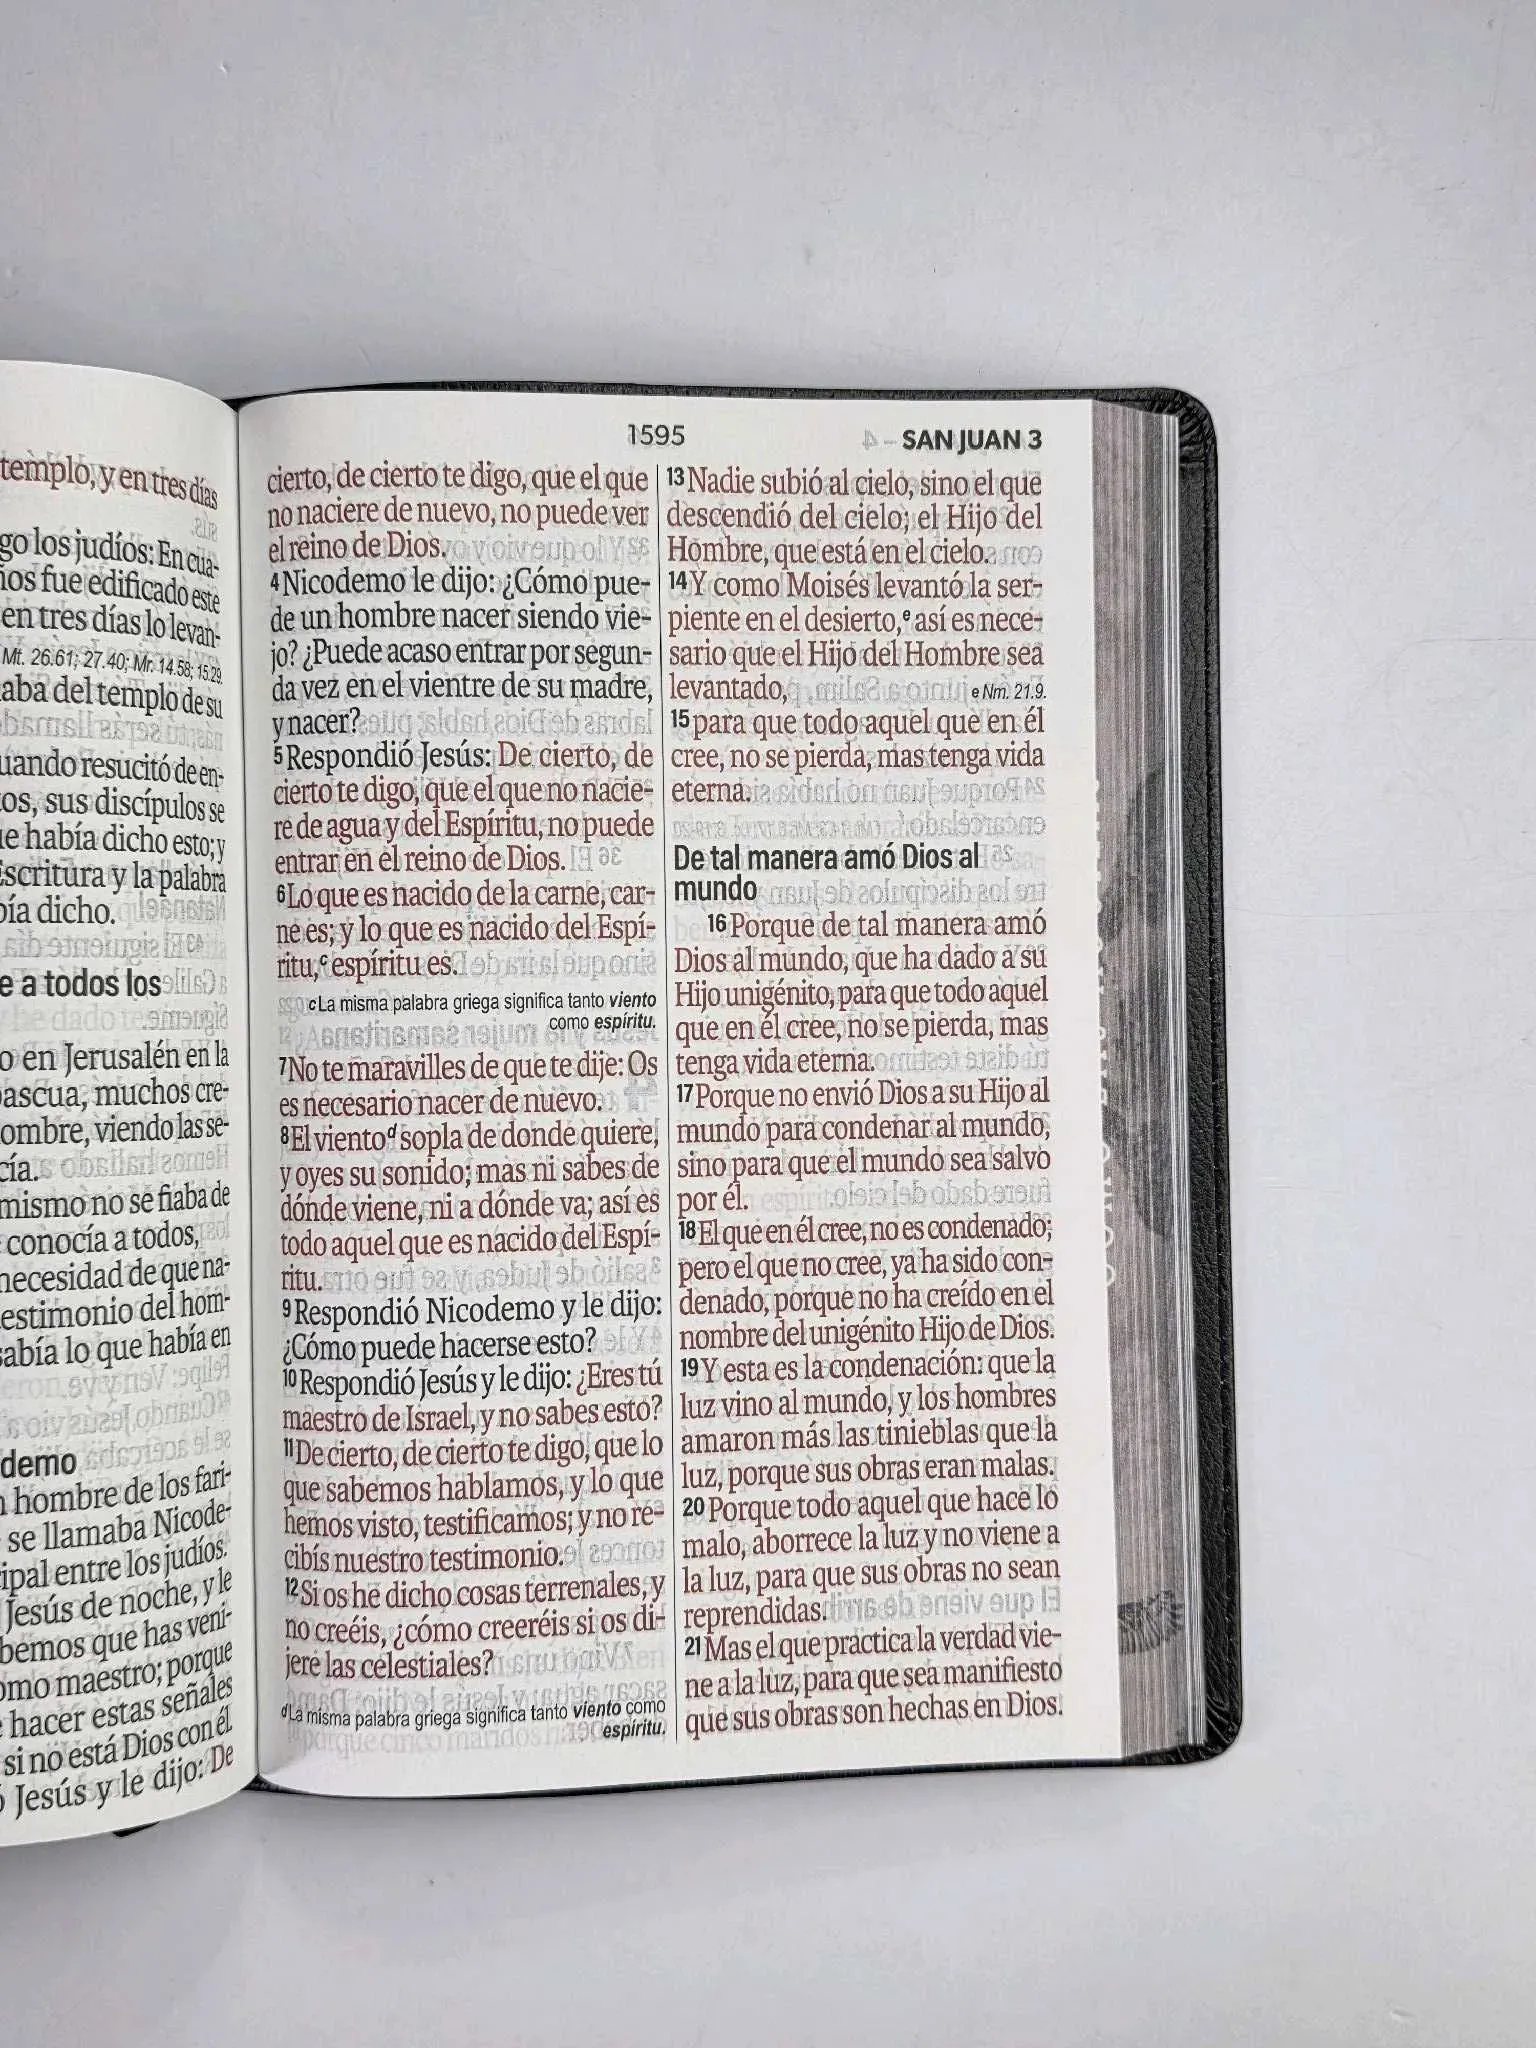 templo, y en tres días
go los judíos: En cua-
nos fue edificado este
en tres días lo levan-
Mt. 26.61; 27.40; Mr. 14.58; 15.29.
aba del templo de su
uando resucitó de en-
os, sus discípulos se
e había dicho esto; y
scritura y la palabra
bía dicho.
e a todos los
o en Jerusalén en la
ascua, muchos cre-
ombre, viendo las se-
cía.
mismo no se fiaba de
conocía a todos,
necesidad de que na-
estimonio del hom-
sabía lo que había en
demo
n hombre de los fari-
se llamaba Nicode-
ipal entre los judíos.
Jesús de noche, y le
bemos que has veni-
omo maestro; porque
hacer estas señales
si no está Dios con él.
ó Jesús y le dijo: De
1595
SAN JUAN 3
cierto, de cierto te digo, que el que
no naciere de nuevo, no puede ver
el reino de Dios.
4 Nicodemo le dijo: ¿Cómo pue-
de un hombre nacer siendo vie-
jo? ¿Puede acaso entrar por segun-
da vez en el vientre de su madre,
y nacer?
5 Respondió Jesús: De cierto, de
cierto te digo, que el que no nacie-
re de agua y del Espíritu, no puede
entrar en el reino de Dios.
6 Lo que es nacido de la carne, car-
ne es; y lo que es nacido del Espí-
ritu,c espíritu es.
c La misma palabra griega significa tanto viento
como espíritu.
7 No te maravilles de que te dije: Os
es necesario nacer de nuevo.
8 El vientod sopla de donde quiere,
y oyes su sonido; mas ni sabes de
dónde viene, ni a dónde va; así es
todo aquel que es nacido del Espí-
ritu.
9 Respondió Nicodemo y le dijo:
¿Cómo puede hacerse esto?
10 Respondió Jesús y le dijo: ¿Eres tú
maestro de Israel, y no sabes esto?
11 De cierto, de cierto te digo, que lo
que sabemos hablamos, y lo que
hemos visto, testificamos; y no re-
cibís nuestro testimonio.
12 Si os he dicho cosas terrenales, y
no creéis, ¿cómo creeréis si os di-
jere las celestiales?
d La misma palabra griega significa tanto viento como
espíritu.
13 Nadie subió al cielo, sino el que
descendió del cielo; el Hijo del
Hombre, que está en el cielo.
14 Y como Moisés levantó la ser-
piente en el desierto,e así es nece-
sario que el Hijo del Hombre sea
levantado, e Nm. 21.9.
15 para que todo aquel que en él
cree, no se pierda, mas tenga vida
eterna.
De tal manera amó Dios al
mundo
16 Porque de tal manera amó
Dios al mundo, que ha dado a su
Hijo unigénito, para que todo aquel
que en él cree, no se pierda, mas
tenga vida eterna.
17 Porque no envió Dios a su Hijo al
mundo para condenar al mundo,
sino para que el mundo sea salvo
por él.
18 El que en él cree, no es condenado;
pero el que no cree, ya ha sido con-
denado, porque no ha creído en el
nombre del unigénito Hijo de Dios.
19 Y esta es la condenación: que la
luz vino al mundo, y los hombres
amaron más las tinieblas que la
luz, porque sus obras eran malas.
20 Porque todo aquel que hace lo
malo, aborrece la luz y no viene a
la luz, para que sus obras no sean
reprendidas.
21 Mas el que practica la verdad vie-
ne a la luz, para que sea manifiesto
que sus obras son hechas en Dios.